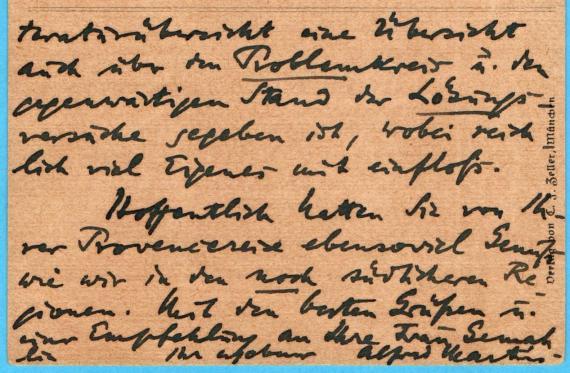 teraturübersicht eine Übersicht
auch über den Problemkreis u. den
gegenwärtigen Stand der Lösungs-
versuche gegeben ist, wobei reich
lich viel Eigenes mit einfloß.
Hoffentlich hatten Sie von Ih-
rer Provencereise ebensoviel Genuß
wie wir in den noch südlicheren Re-
gionen. Mit den besten Grüßen u.
einer Empfehlung an Ihre Frau Gemah
lin Ihr ergebener Alfred Martin
Verlag von C. J. Zeller, München